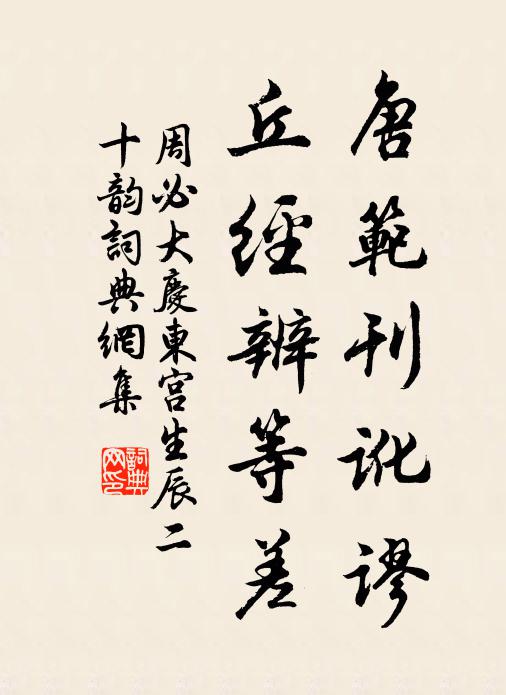 唐範刊訛謬
丘經辨等差
周必大慶東宮生辰二
十韵詞典網集
詞典网印